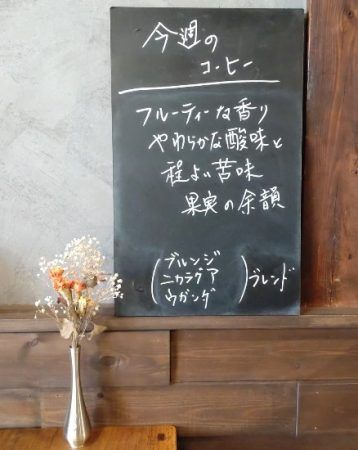 今週の
コーヒー
フルーティーな香り
やわらかな酸味と
程よい苦味
果実の余韻
(ブルンジ
ニカラグア
ウガンダ)ブレンド